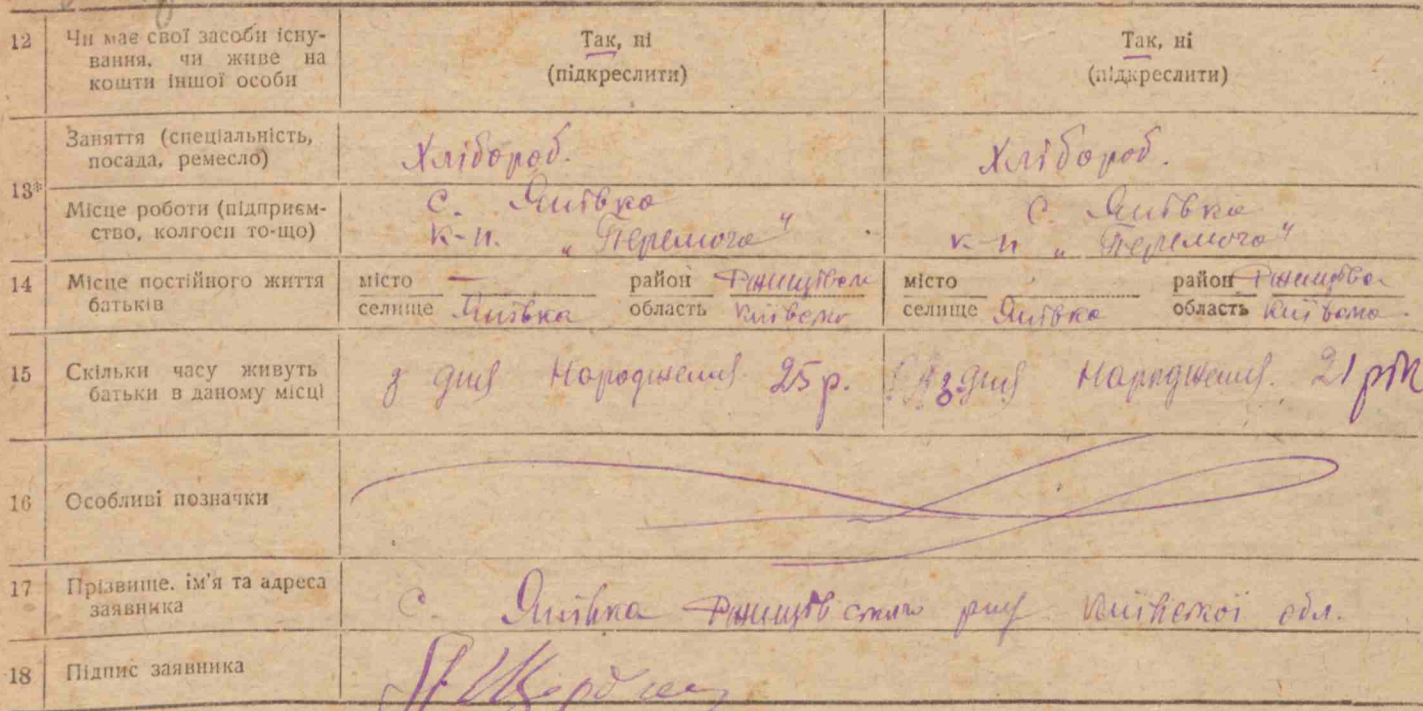 12 Чи має свої засоби існу-
вання, чи живе на
кошти іншої особи
Так, ні
(підкреслити)
Так, ні
(підкреслити)
13*
Заняття (спеціальність,
посада, ремесло)
Хлібороб.
Хлібороб.
Місце роботи (підприєм-
ство, колгосп то-що)
с.
к-п. „Перемога"
с.
к-п „Перемога"
14 Місце постійного життя
батьків
місто — район
селище область Київськ
місто район
селище область Київська
15 Скільки часу живуть
батьки в даному місці
з дня народження 25 р.
з дня народження. 21 рік
16 Особливі позначки
17 Прізвище, ім'я та адреса
заявника
с. р-ну Київської обл.
18 Підпис заявника